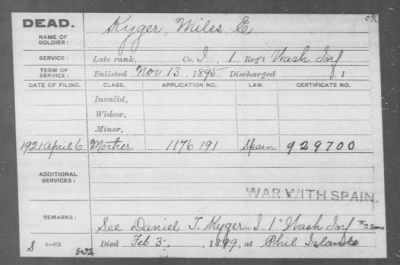 DEAD. Kyger, Miles E OK
NAME OF SOLDIER:
SERVICE: Late rank, Co. I 1 Reg't Wash Inf
TERM OF SERVICE: Enlisted Nov. 13, 1895 Discharged , 1
DATE OF FILING. CLASS. APPLICATION NO. LAW. CERTIFICATE NO.
Invalid,
Widow,
Minor,
1921 April 6 Mother 1176191 Spain 929700
ADDITIONAL SERVICES:
WAR WITH SPAIN.
REMARKS: See Daniel T. Kyger I. 1" Wash Inf
Died Feb. 3, 1899, at Phil Islands